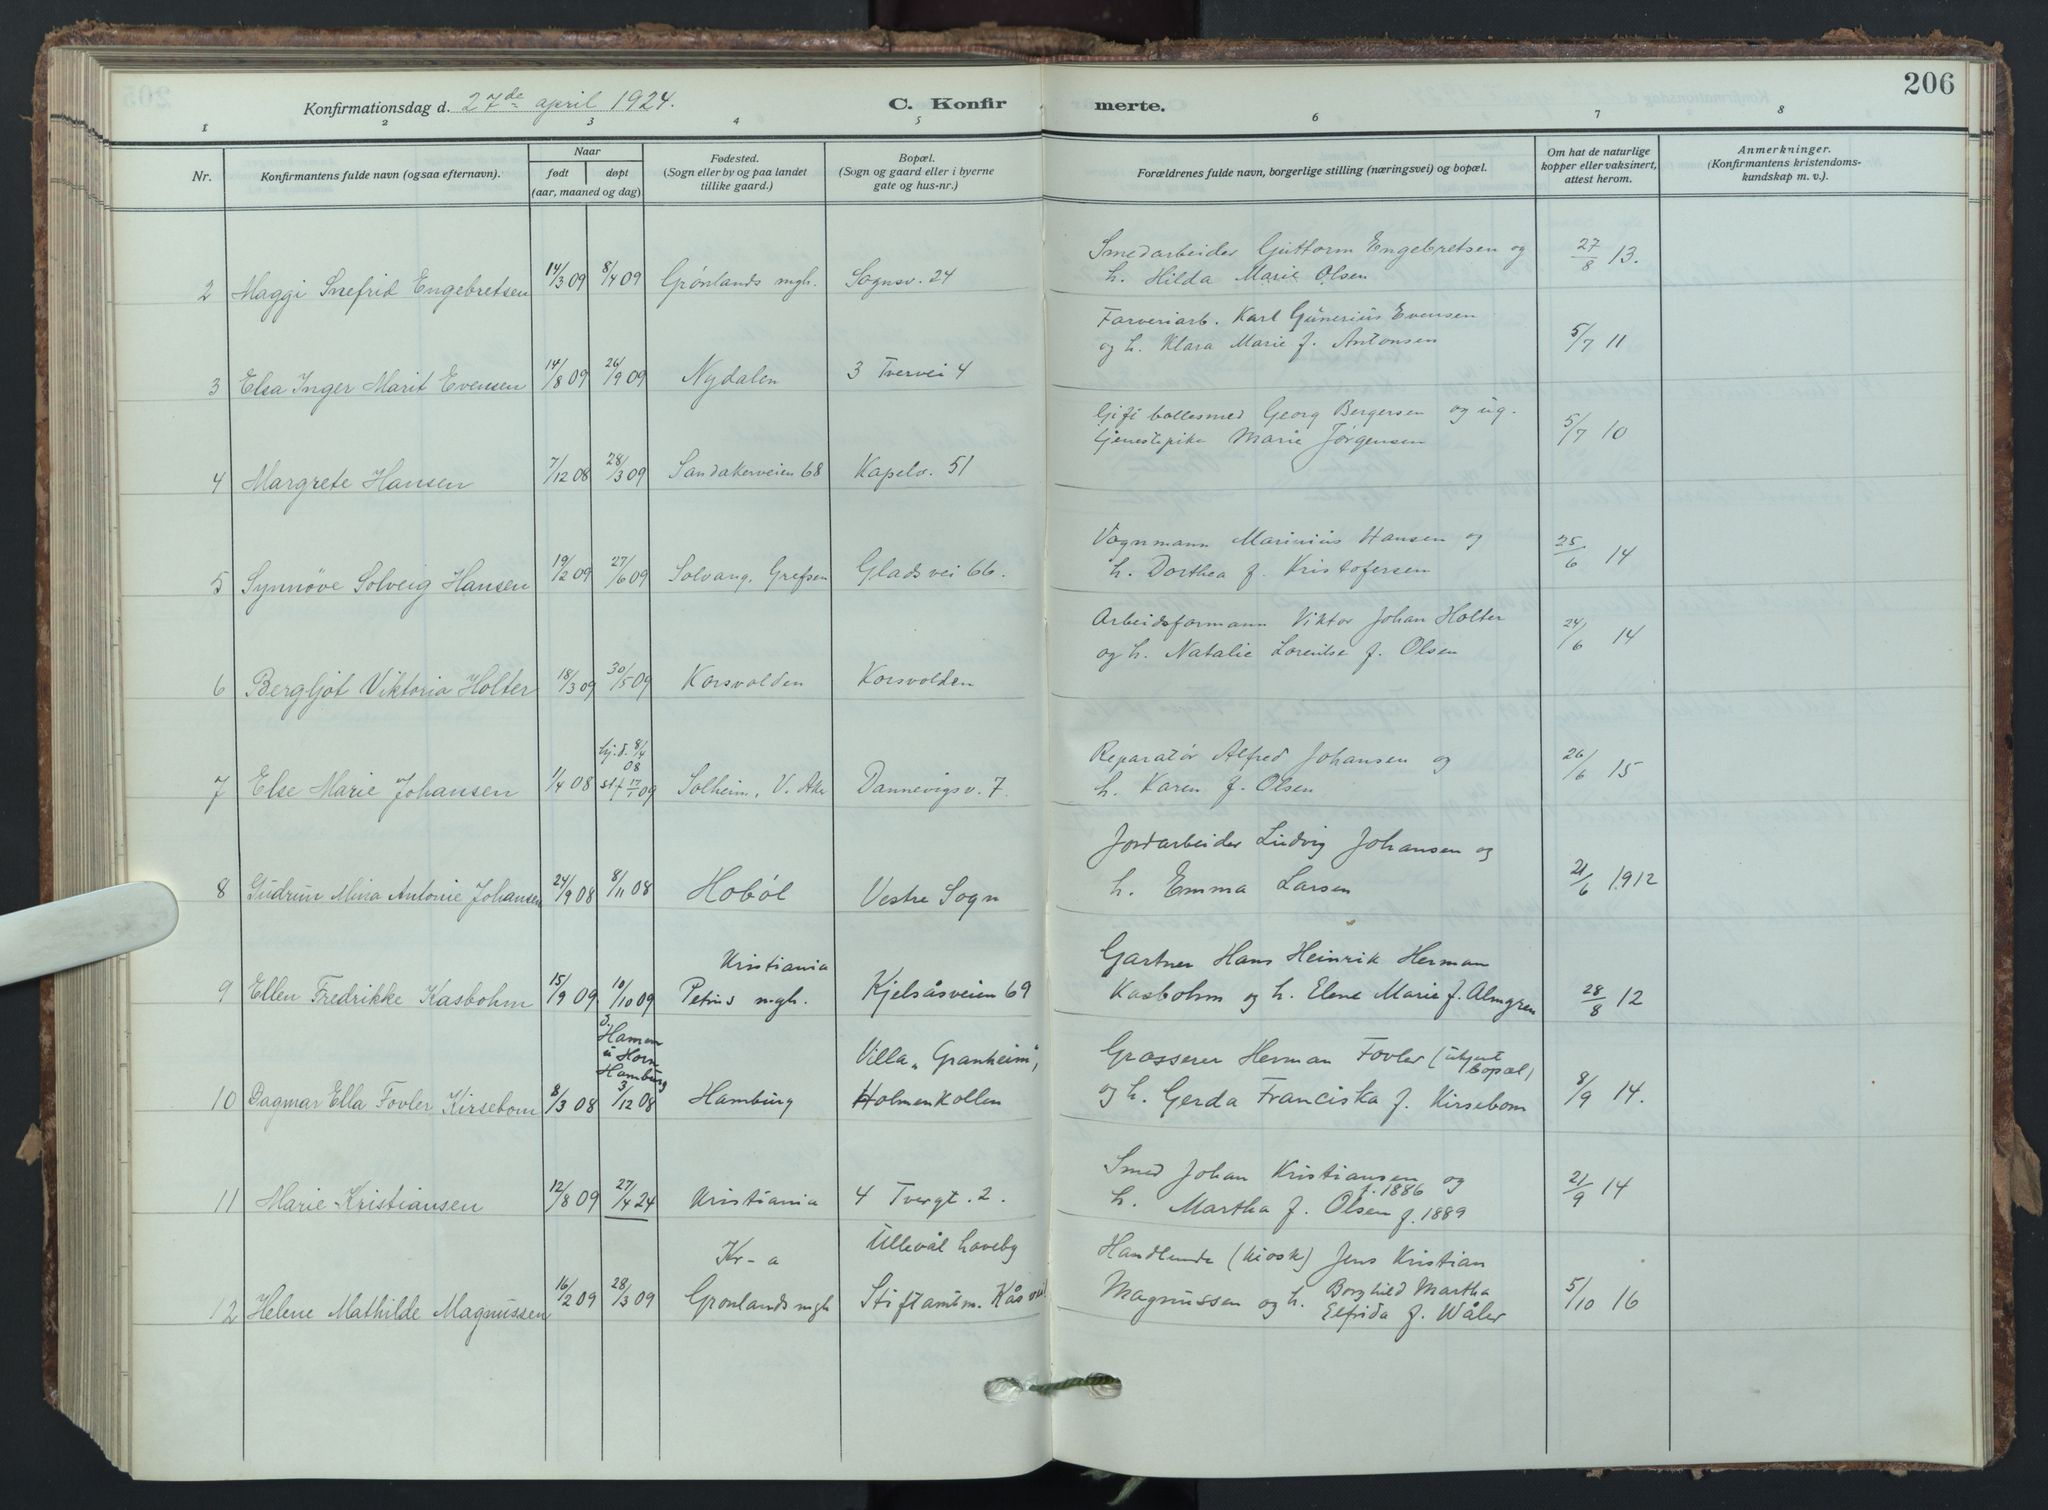 206
Konfirmationsdag d. 27de april 1924.
C. Konfirmerte.
1 2 3 4 5 6 7 8
Nr.
Konfirmantens fulde navn (ogsaa efternavn).
Naar
født
døpt
(aar, maaned og dag)
Fødested.
(Sogn eller by og paa landet
tillike gaard.)
Bopæl.
(Sogn og gaard eller i byerne
gate og hus-nr.)
Forældrenes fulde navn, borgerlige stilling (næringsvei) og bopæl.
Om hat de naturlige
kopper eller vaksinert,
attest herom.
Anmerkninger.
(Konfirmantens kristendoms-
kundskap m. v.).
Smedarbeider Guttorm Engebretsen og
2 Maggi Snefrid Engebretsen 14/3 09 8/4 09 Grønlands mgh. Sognsv. 24 h. Hilda Marie Olsen 27/8 13.
Farveriarb. Karl Gunerius Evensen
og h. Klara Marie f. Antonsen 5/7 11
3 Elsa Inger Marit Evensen 14/8 09 26/9 09 Nydalen 3 Tvervei 4
Gift bollesmed Georg Bergersen og ug.
tjenestepike Marie Jørgensen 5/7 10
4 Margrete Hansen 7/12 08 28/3 09 Sandakerveien 68 Kapelv. 51
Vognmann Marinius Hansen og
5 Synnøve Solveig Hansen 19/2 09 27/6 09 Solvang, Grefsen Gladsvei 66. h. Dorthea f. Kristofersen 25/6 14
Arbeidsformann Viktor Johan Holter
og h. Natalie Lorentse f. Olsen 24/6 14
6 Bergljot Viktoria Holter 18/3 09 30/5 09 Korsvolden Korsvolden
hj.d. 8/4
08
Reparatør Alfred Johansen og
7 Else Marie Johansen 1/4 08 stf 17/1 09 Solheim, V. Aker Dannevigsv. 7. h. Karen f. Olsen 26/6 15
Jordarbeider Ludvig Johansen og
8 Gudrun Mina Antonie Johansen 24/9 08 8/11 08 Hobøl Vestre Sogn h. Emma Larsen 21/6 1912
Kristiania
Gartner Hans Heinrik Herman
9 Ellen Fredrikke Kasbohm 15/9 09 10/10 09 Petrus mgh. Kjelsåsveien 69 Kasbohm og h. Elene Marie f. Almgren 28/8 12
d.
Hamm
u Horn
Hamburg
Villa „Granheim",
Grosserer Herman Fovler (ukjent
bopæl)
10 Dagmar Ella Fovler Kirsebom 8/3 08 3/12 08 Hamburg Holmenkollen og h. Gerda Franciska f. Kirsebom 8/9 14.
Smed Johan Kristiansen og
f. 1886
11 Marie Kristiansen 12/8 09 27/4 24 Kristiania 4 Tvergt. 2. h. Martha f. Olsen f. 1889 21/9 14
Kr-a
Ullevål haveby
Handlende (kiosk) Jens Kristian
12 Helene Mathilde Magnussen 16/2 09 28/3 09 Grønlands mgh Stiftamtm. Kås vei Magnussen og h. Borghild Martha
Elfrida f. Wåler 5/10 16